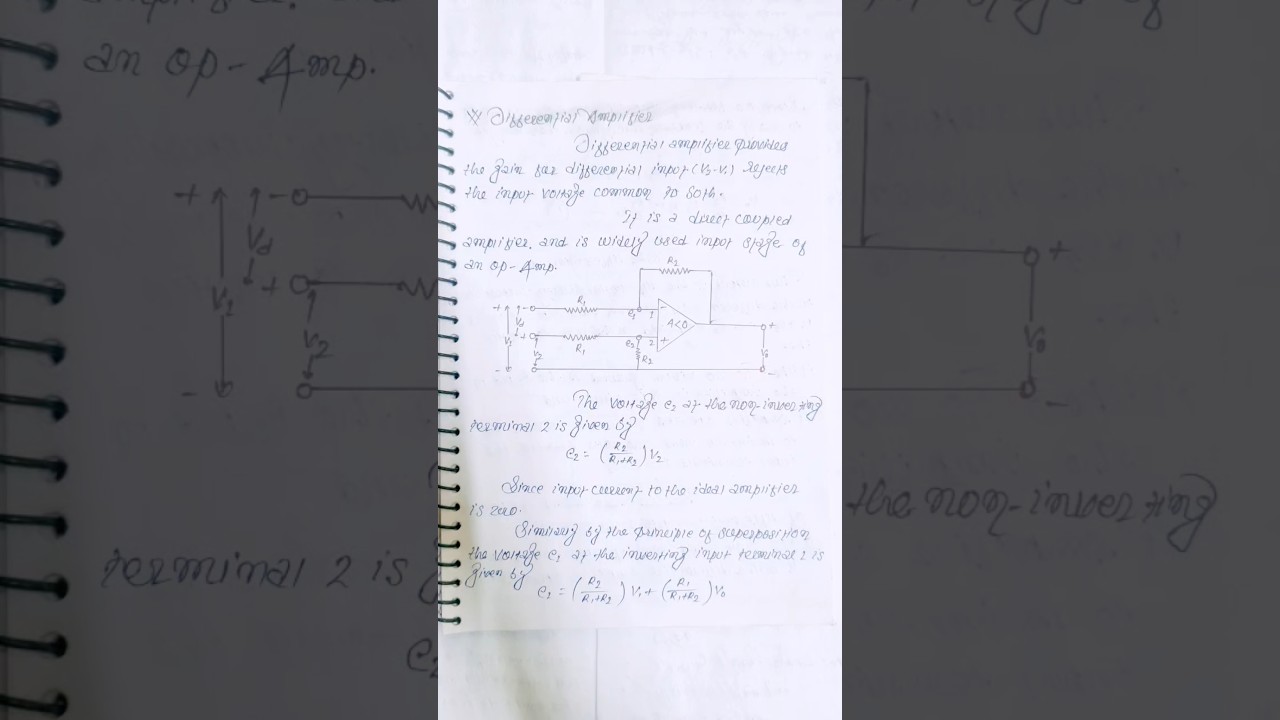 ※ Differential Amplifier
Differential amplifier provides
the gain for differential input (V2-V1) rejects
the input voltage common to both.
It is a direct coupled
amplifier. and is widely used input stage of
an op-Amp.
R2
+ - R1 e1 1 -
V1 Vd A<0 +
+ R1 e2 2 + V0
V2 R2
- -
The voltage e2 at the non-inverting
terminal 2 is given by
e2 = (R2/R1+R2) V2
Since input current to the ideal amplifier
is zero.
Similarly by the principle of superposition
the voltage e1 at the inverting input terminal 1 is
given by
e1 = (R2/R1+R2) V1 + (R1/R1+R2) V0